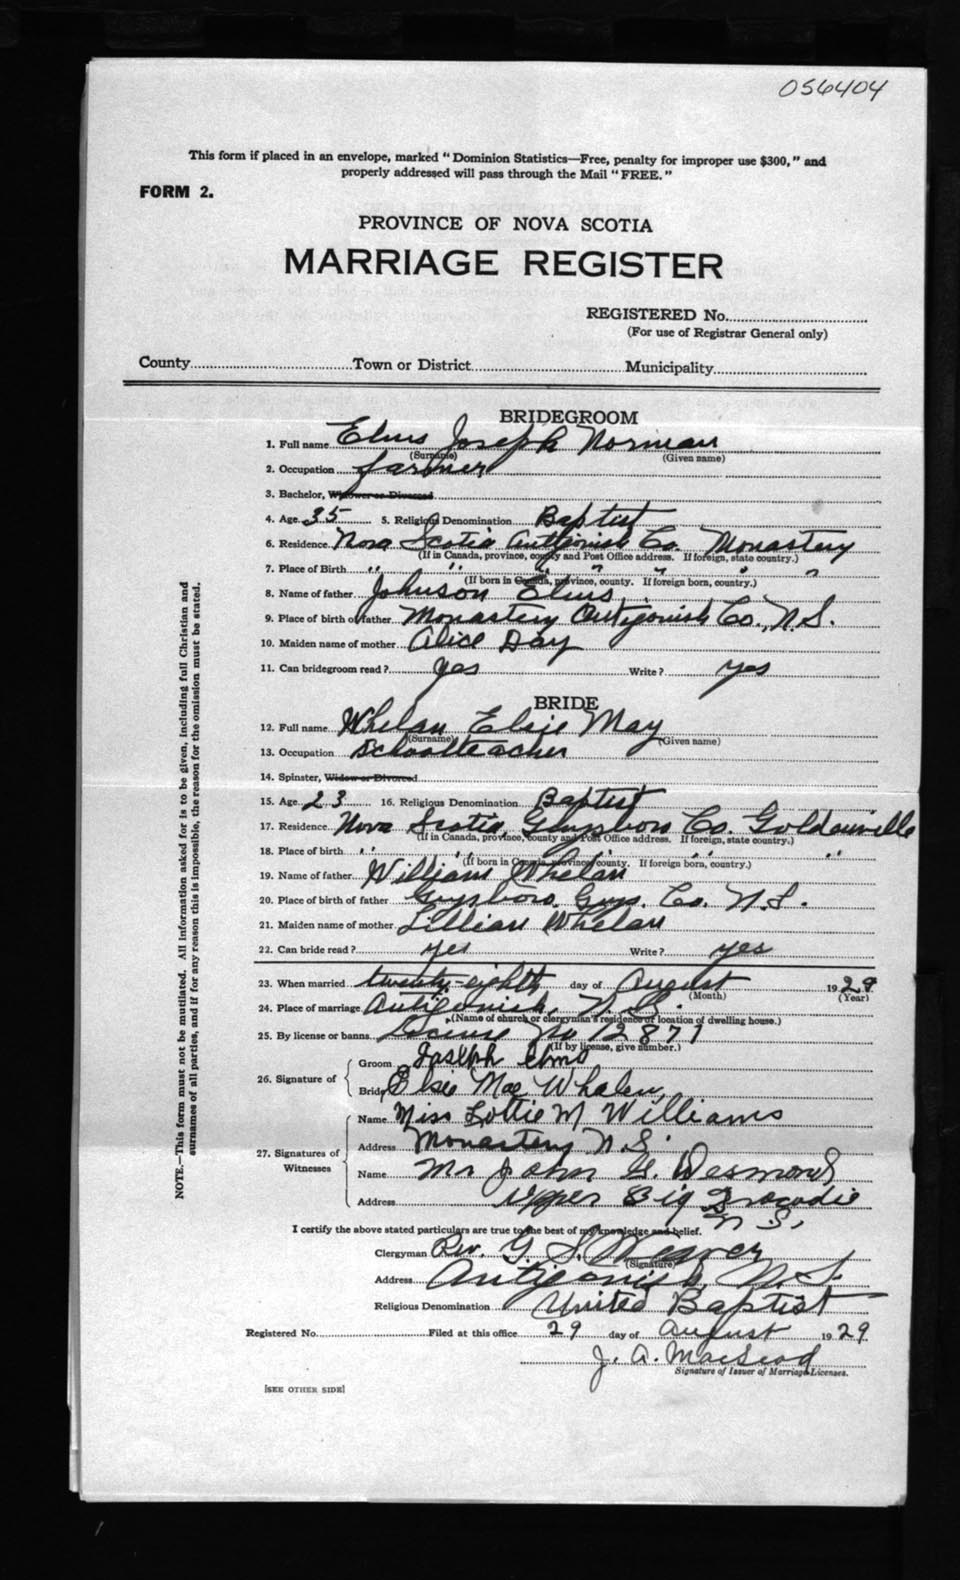 056404
This form if placed in an envelope, marked "Dominion Statistics—Free, penalty for improper use $300," and
properly addressed will pass through the Mail "FREE."
FORM 2.
PROVINCE OF NOVA SCOTIA
MARRIAGE REGISTER
REGISTERED No.
(For use of Registrar General only)
County Town or District Municipality
BRIDEGROOM
1. Full name Elms Joseph Norman
(Surname) (Given name)
2. Occupation farmer
3. Bachelor, Widower or Divorced
4. Age 35 5. Religious Denomination Baptist
6. Residence Nova Scotia Antigonish Co. Monastery
(If in Canada, province, county and Post Office address. If foreign, state country.)
7. Place of Birth " " " " " "
(If born in Canada, province, county. If foreign born, country.)
8. Name of father Johnson Elms
9. Place of birth of father Monastery Antigonish Co., N.S.
10. Maiden name of mother Alice Day
11. Can bridegroom read? yes Write? yes
BRIDE
12. Full name Whelan Elsie May
(Surname) (Given name)
13. Occupation Schoolteacher
14. Spinster, Widow or Divorced
15. Age 23 16. Religious Denomination Baptist
17. Residence Nova Scotia Guysboro Co. Goldenville
(If in Canada, province, county and Post Office address. If foreign, state country.)
18. Place of birth " " " " "
(If born in Canada, province county. If foreign born, country.)
19. Name of father William Whelan
20. Place of birth of father Guysboro Guys. Co. N.S.
21. Maiden name of mother Lillian Whelan
22. Can bride read? yes Write? yes
23. When married twenty-eighth day of August 1929
(Month) (Year)
24. Place of marriage Antigonish, N.S.
(Name of church or clergyman's residence or location of dwelling house.)
25. By license or banns License No 12877
(If by license, give number.)
26. Signature of
Groom Joseph Elms
Bride Elsie Mae Whalen
27. Signatures of Witnesses
Name Miss Lottie M Williams
Address Monastery N.S.
Name Mr John G. Desmond
Address Upper Big Tracadie
N.S.
I certify the above stated particulars are true to the best of my knowledge and belief.
Clergyman Rev. G. S. Weaver
(Signature)
Address Antigonish, N.S.
Religious Denomination United Baptist
Registered No. Filed at this office 29 day of August 1929
J. A. MacLeod
Signature of Issuer of Marriage Licenses.
[SEE OTHER SIDE]
NOTE.—This form must not be mutilated. All information asked for is to be given, including full Christian and
surnames of all parties, and if for any reason this is impossible, the reason for the omission must be stated.